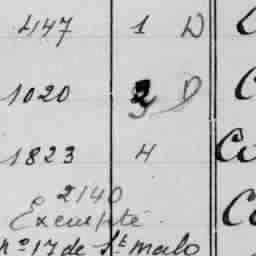 447 1 D C
1020 3 D C
1823 4 Co
2140
Exempte Co
nº 17 de St Malo